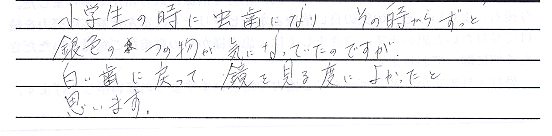 小学生の時に虫歯になり その時からずっと
銀色の つの物が気になっていたのですが、
白い歯に戻って、鏡を見る度によかったと
思います。